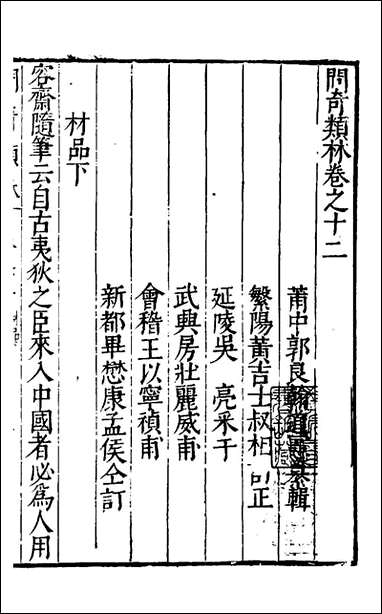 問奇類林卷之十二
莆中郭良翰道憲纂輯
繁陽黃吉士叔相訂正
延陵吳 亮采于
武興房壯麗威甫
會稽王以寧禎甫
新都畢懋康孟侯仝訂
材品下
容齋隨筆云自古夷狄之臣來入中國者必為人用